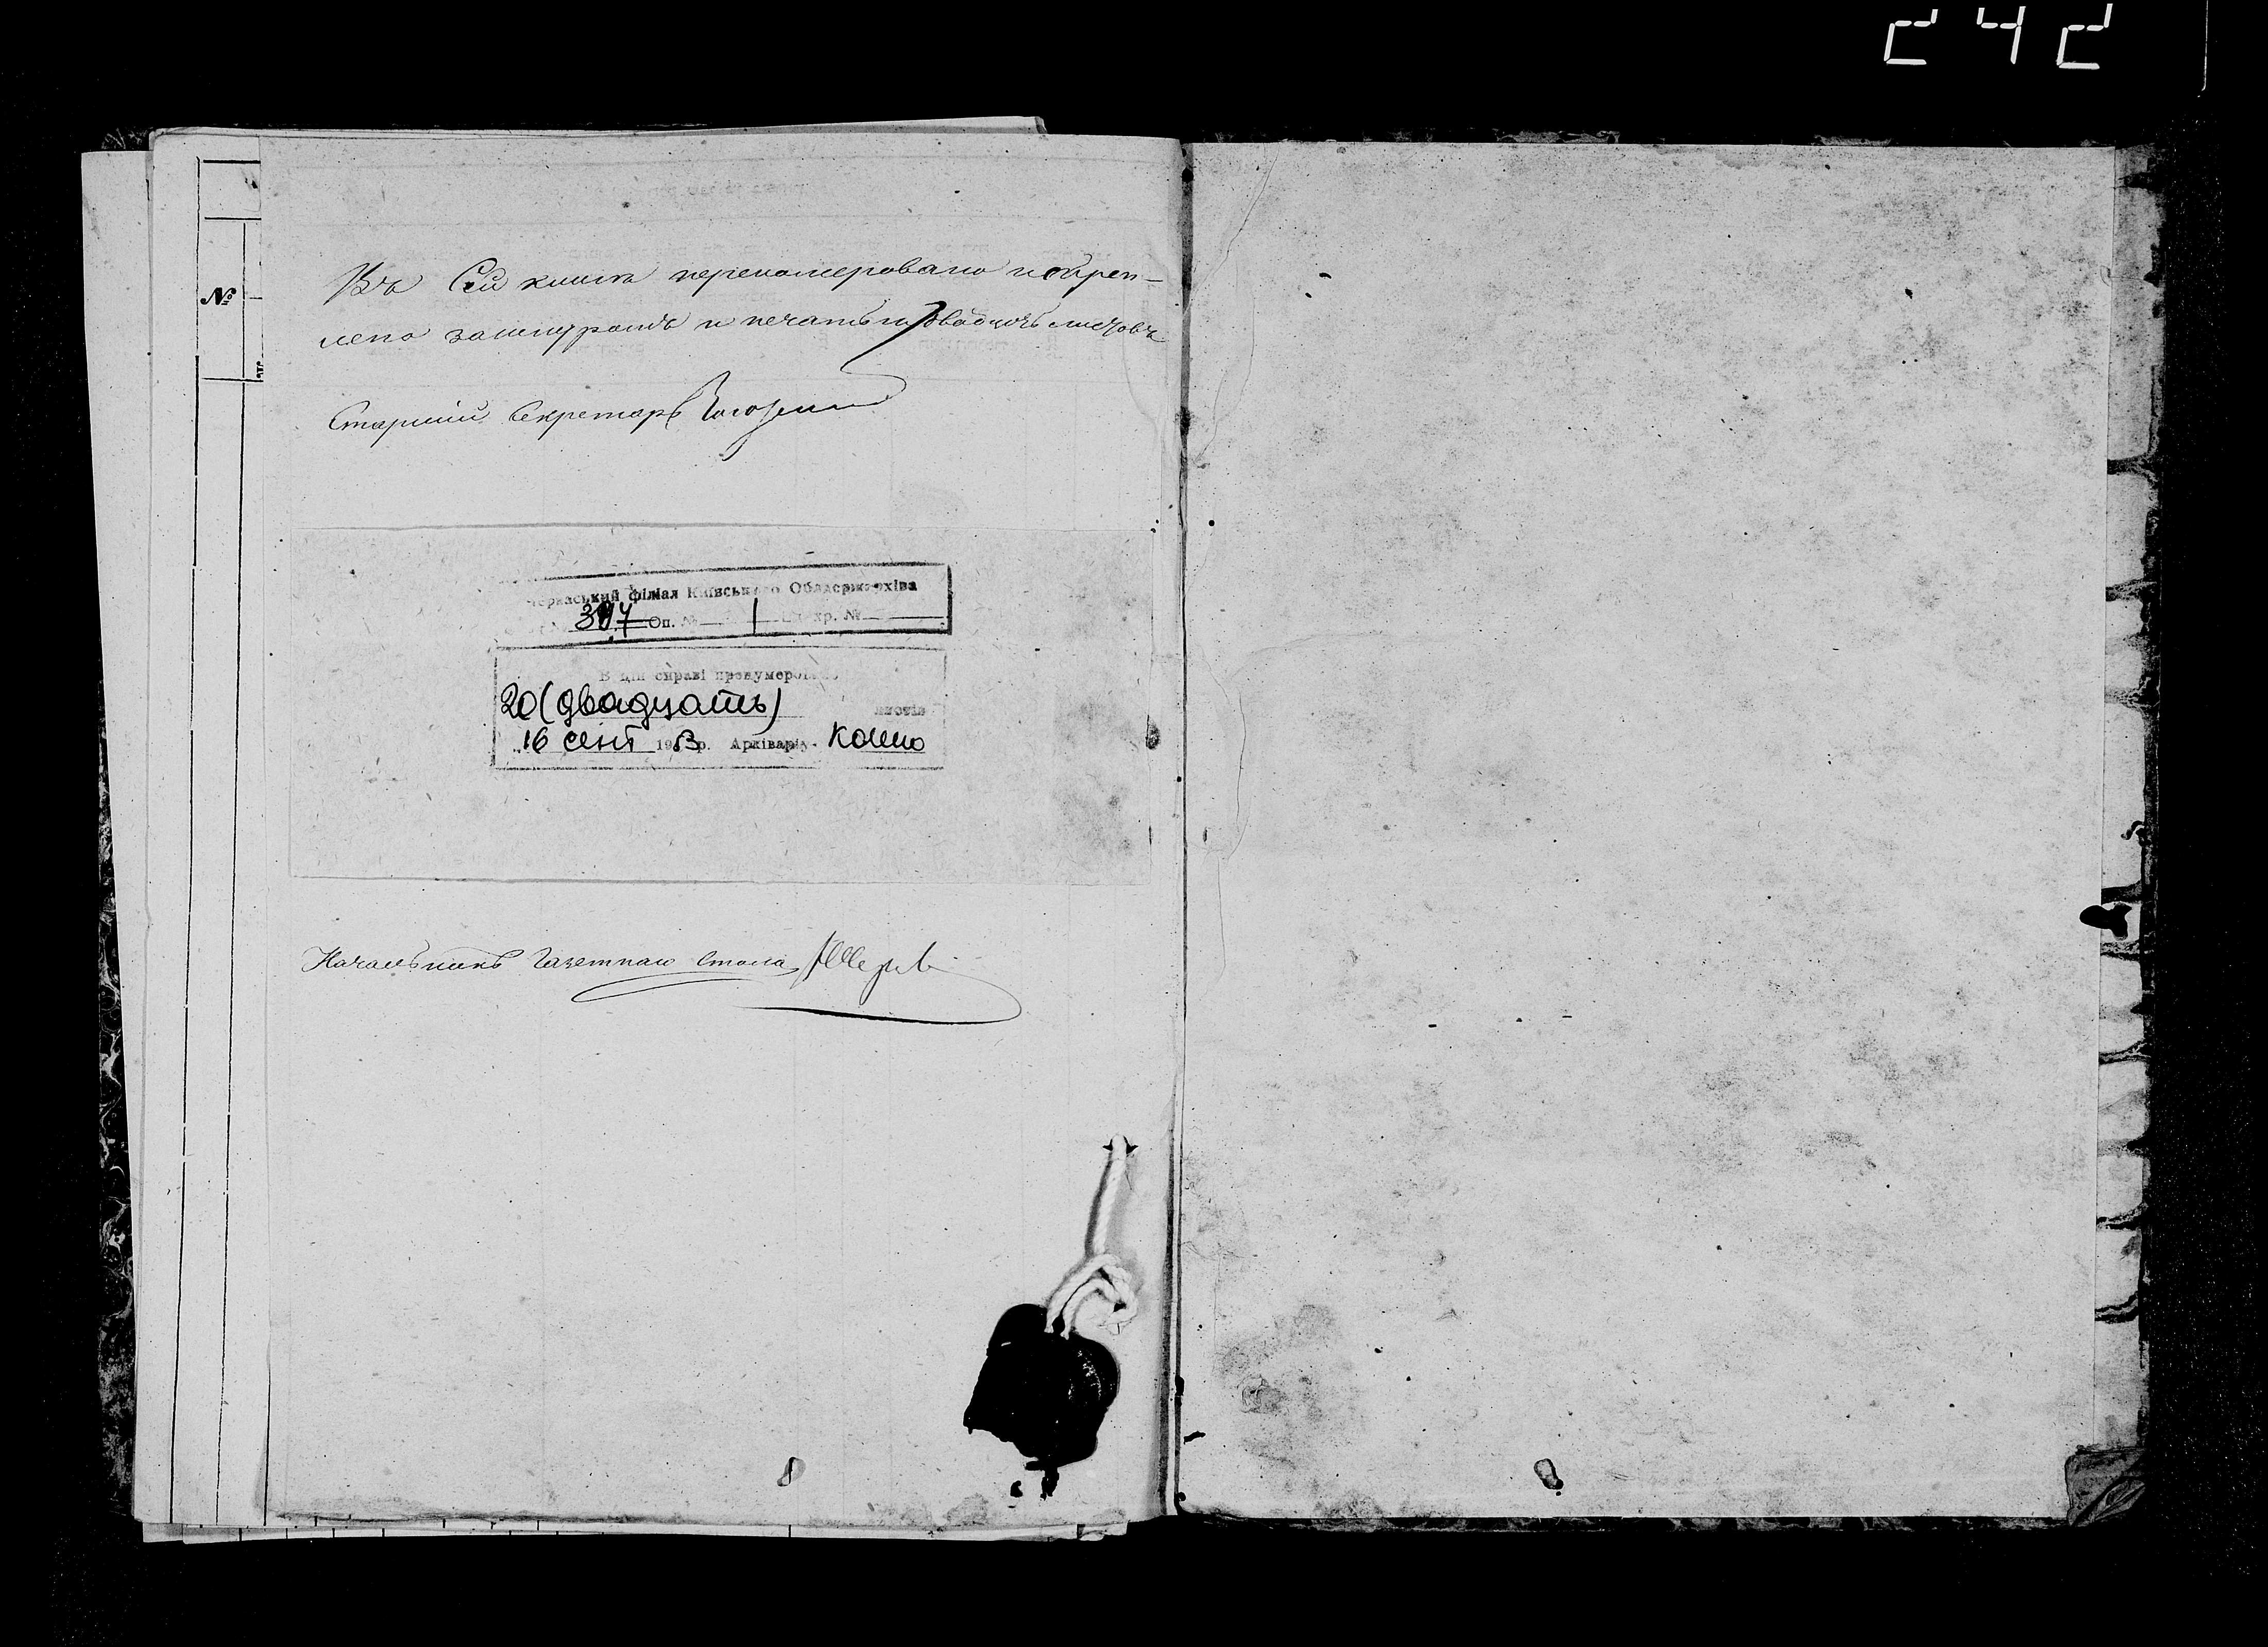 242
№
Въ Сей книге перенумеровано и скреп-
лено за шнуромъ и печатью двадцать листовъ
Старший Секретарь
Черкаський філіал Київського Облдержархіва
Оп. № 1 Од. хр. №
В цій справі пронумеровано
20 (двадцать) листів
„16 сент 195 р. Архіваріус
Начальникъ Газетнаго Стола